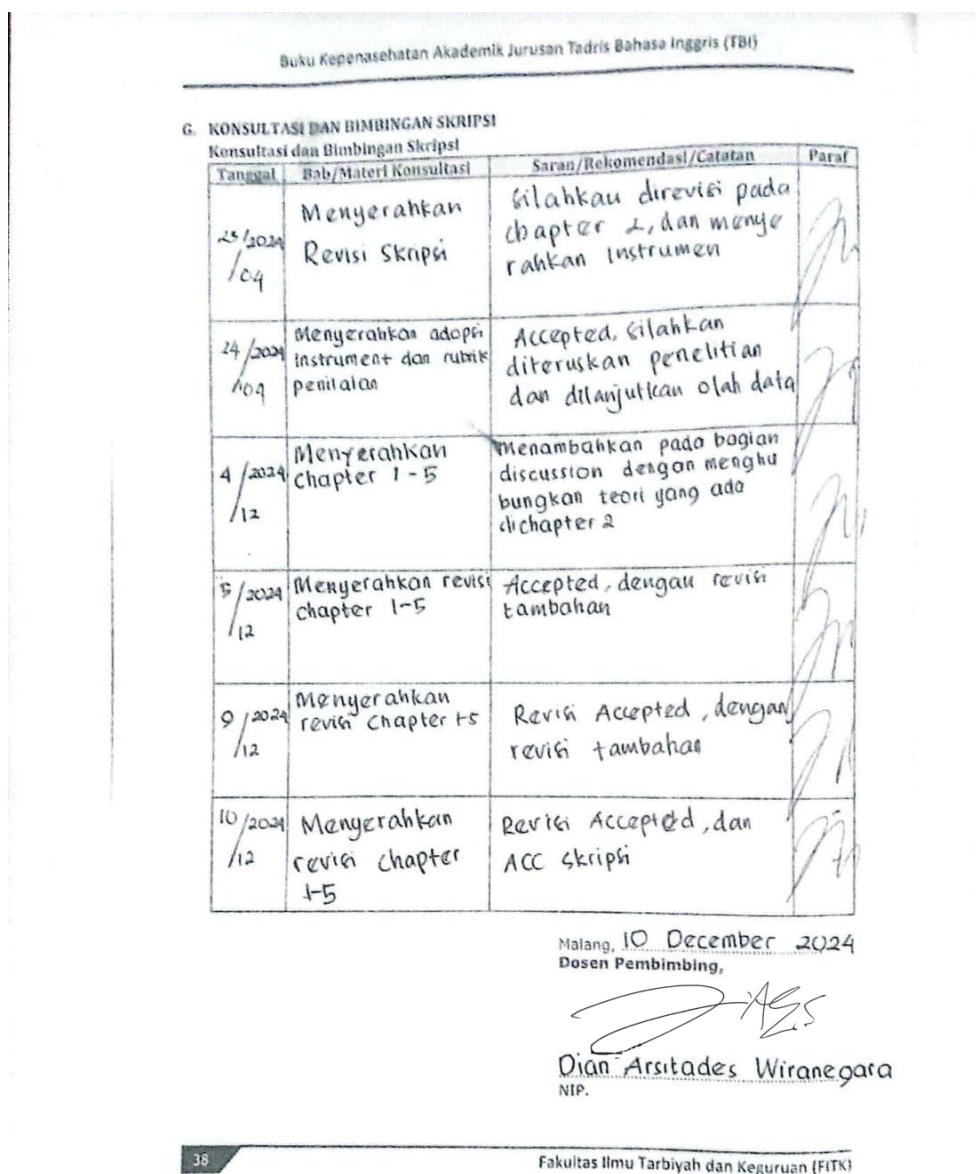 Buku Kepenasehatan Akademik Jurusan Tadris Bahasa Inggris (TBI)
G. KONSULTASI DAN BIMBINGAN SKRIPSI
Konsultasi dan Bimbingan Skripsi
Tanggal Bab/Materi Konsultasi Saran/Rekomendasi/Catatan Paraf
23/2024
/04
Menyerahkan
Revisi Skripsi
Silahkan direvisi pada
chapter 2, dan menye
rahkan Instrumen
24/2024
/04
Menyerahkan adopsi
instrument dan rubrik
penilaian
Accepted, silahkan
diteruskan penelitian
dan dilanjutkan olah data
4/2024
/12
Menyerahkan
chapter 1-5
Menambahkan pada bagian
discussion dengan menghu
bungkan teori yang ada
dichapter 2
5/2024
/12
Menyerahkan revisi
chapter 1-5
Accepted, dengan revisi
tambahan
9/2024
/12
Menyerahkan
revisi chapter 1-5
Revisi Accepted, dengan
revisi tambahan
10/2024
/12
Menyerahkan
revisi chapter
1-5
Revisi Accepted, dan
ACC skripsi
Malang, 10 December 2024
Dosen Pembimbing,
Dian Arsitades Wiranegara
NIP.
38
Fakultas Ilmu Tarbiyah dan Keguruan (FITK)